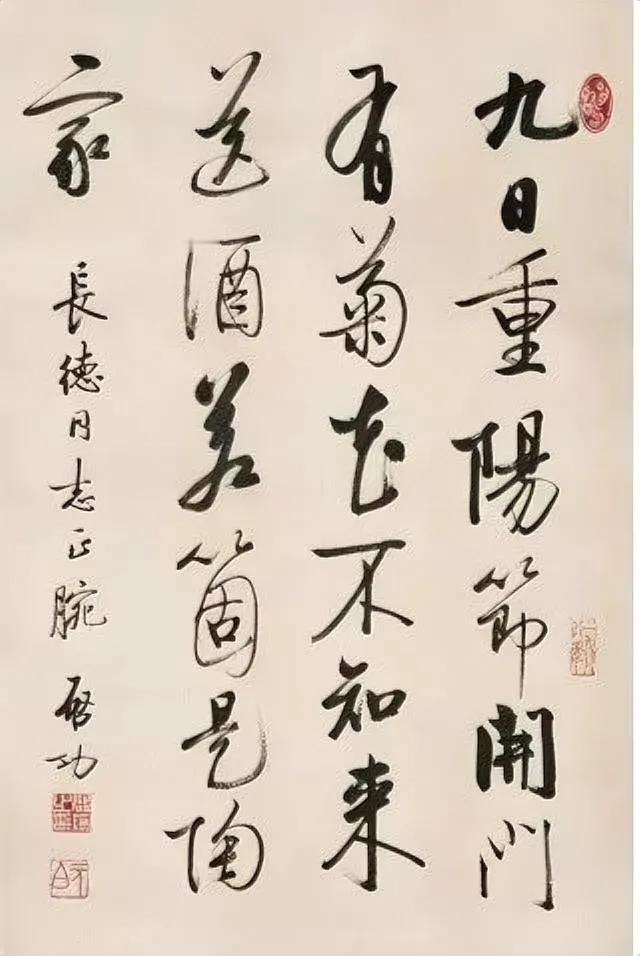 九日重陽節開門
有菊花不知來
送酒若箇是陶
家
長德同志正腕 啓功